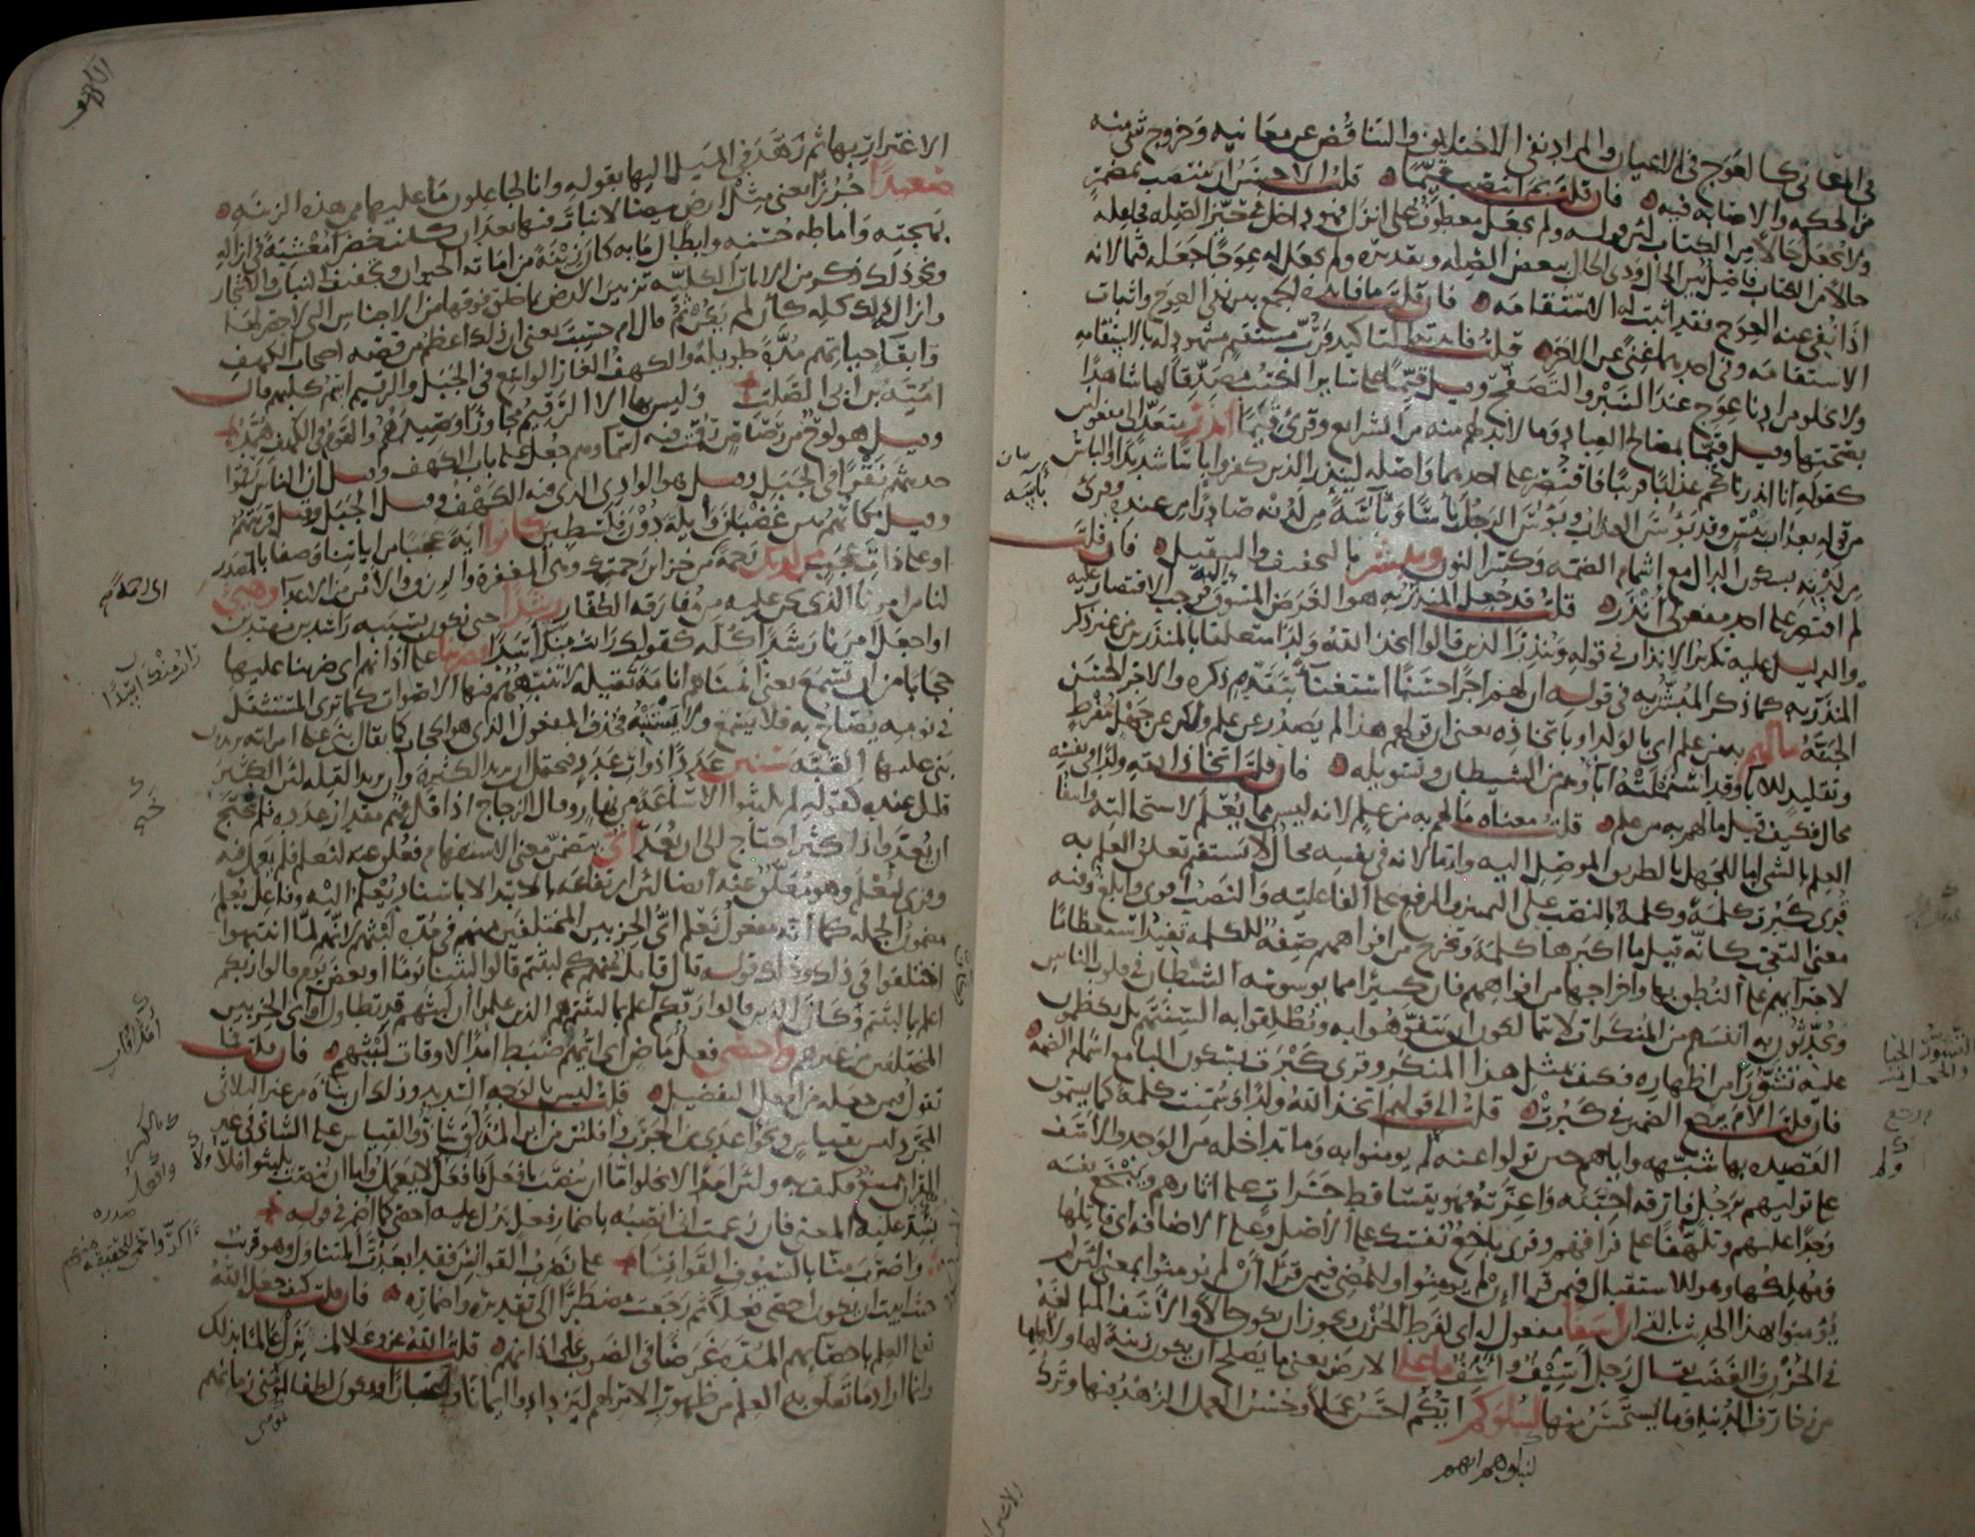 في المعاني كالعوج في الاعيان والمراد نفي الاختلاف والتناقض عن معانيه وخروج شي منه
من الحكمة والاصابة فيه فان قلت بم انتصب قيما قلت الاحسن ان ينتصب بمضمر
ولا يجعل حالا من الكتاب لان قوله ولم يجعل معطوف على انزل فهو داخل في حيز الصلة فجاعله
حالا من الكتاب فاصل بين الحال وذي الحال ببعض الصلة وتقديره ولم يجعل له عوجا جعله قيما لانه
اذا نفى عنه العوج فقد اثبت له الاستقامه فان قلت ما فائدة الجمع بين نفي العوج واثبات
الاستقامه وفي احدهما غنى عن الاخر قلت فائدته التاكيد فرب مستقيم مشهود له بالاستقامه
ولا يخلو من ادنا عوج عند السبر والتصفح وقيل قيما على سائر الكتب مصدقا لها شاهدا
بصحتها وقيل قيما بمصالح العباد وما لا بد لهم منه من الشرايع وقرئ قيما انذر متعد الى مفعولين
كقوله انا انذرناكم عذابا قريبا فاقتصر على احدهما واصله لينذر الذين كفروا باسا شديدا والباس
من قوله بعذاب بئيس وقد بؤس العذاب وبؤس الرجل باسا وبآسة من لدنه صادرا من عنده وقرئ
من لدنه بسكون الدال مع اشمام الضمه وكسر النون ويبشر بالتخفيف والتثقيل فان قلت
لم اقتصر على احد مفعولي انذر قلت قد جعل المنذر به هو الغرض المسوق اليه فوجب الاقتصار عليه
والدليل عليه تكرير الانذار في قوله وينذر الذين قالوا اتخذ الله ولدا متعلقا بالمنذرين من غير ذكر
المنذر به كما ذكر المبشر به في قوله ان لهم اجرا حسنا استغناء بتقدم ذكره والاجر الحسن
الجنة ما لهم به من علم اي بالولد او باتخاذه يعني ان قولهم هذا لم يصدر عن علم ولكن عن جهل مفرط
وتقليد للاباء وقد اشتملته اباؤهم من الشيطان وتسويله فان قلت اتخاذ الله ولدا في نفسه
محال فكيف قيل ما لهم به من علم قلت معناه ما لهم به من علم لانه ليس مما يعلم لاستحالته وانتفا
العلم بالشي اما للجهل بالطريق الموصل اليه واما لانه في نفسه محال لا يستقيم تعلق العلم به
قرئ كبرت كلمة وكلمة بالنصب على التمييز والرفع على الفاعلية والنصب اقوى وابلغ وفيه
معنى التعجب كانه قيل ما اكبرها كلمة وتخرج من افواههم صفة للكلمه تفيد استعظاما
لاجترايهم على النطق بها واخراجها من افواههم فان كثيرا مما يوسوسه الشيطان في قلوب الناس
ويحدثون به انفسهم من المنكرات لا يتمالكون ان يتفوهوا به ويطلقوا به السنتهم بل يكظمون
عليه تشورا من اظهاره فكيف بمثل هذا المنكر وقرى كبرت بسكون البا مع اشمام الضمه
فان قلت الام يرجع الضمير في كبرت قلت الى قولهم اتخذ الله ولدا وسميت كلمة كما يسمون
القصيده بها شبهه واياهم حين تولوا عنه لم يومنوا به وما تداخله من الوجد والاسف
على توليهم برجل فارقه احبته واعزته فهو يتساقط حسرات على اثارهم ويبخع نفسه
وجدا عليهم وتلهفا على فراقهم وقرى باخع نفسك على الاصل وعلى الاضافه اي قاتلها
ومهلكها وهو للاستقبال فيمن قرا ان لم يومنوا وللمضي فيمن قرا ان لم يومنوا بمعنى لان لم
يؤمنوا بهذا الحديث بالقران اسفا مفعول له اي لفرط الحزن ويجوز ان يكون حالا والاسف المبالغة
في الحزن والغضب يقال رجل اسف واسيف ما على الارض يعني ما يصلح ان يكون زينة لها ولاهلها
من زخارف الدنيا وما يستحسن منها لنبلوكم ايكم احسن عملا وحسن العمل الزهد فيها وترك
لنبلوهم ايهم
الاغترار بها ثم زهد في الميل اليها بقوله وانا لجاعلون ما عليها من هذه الزينه
صعيدا جرزا يعني مثل ارض بيضا لا نبات فيها بعد ان كانت خضرا معشبة في ازالة
بهجته واماطة حسنه وابطال ما به كان زينة من اماتة الحيوان وتجفيف النبات والاشجار
ونحو ذلك ذكر من الايات الكليه تزيين الارض بما خلق فوقها من الاجناس التي لا حصر لها
وازالة ذلك كله كان لم يكن ثم قال ام حسبت يعني ان ذلك اعظم من قصة اصحاب الكهف
وابقا حياتهم مدة طويلة والكهف الغار الواسع في الجبل والرقيم اسم كلبهم قال
امية بن ابي الصلت وليس بها الا الرقيم مجاورا وصيدهم والقوم في الكهف همد
وقيل هو لوح من رصاص رقمت فيه اسماؤهم جعل على باب الكهف وقيل ان الناس رقموا
حديثهم نقرا في الجبل وقيل هو الوادي الذي فيه الكهف وقيل الجبل وقيل قريتهم
وقيل مكانهم بين غضبان وايلة دون فلسطين كانوا اية عجبا من اياتنا وصفا بالمصدر
او على ذات عجب من لدنك رحمة من خزاين رحمتك وهي المغفرة والرزق والامن من الاعدا وهيئ
لنا من امرنا الذي نحن عليه من مفارقة الكفار رشدا حتى نكون بسببه راشدين مهتدين
او اجعل امرنا رشدا كله كقولك رايت منك اسدا فضربنا على اذانهم اي ضربنا عليها
حجابا من ان تسمع يعني انمناهم انامة ثقيلة لا تنبههم فيها الاصوات كما ترى المستثقل
في نومه يصاح به فلا يسمع ولا يستنبه فحذف المفعول الذي هو الحجاب كما يقال بنى على امراته يريدون
بنى عليها القبة سنين عددا ذوات عدد فيحتمل ان يريد الكثرة وان يريد القلة لان الكثير
قليل عنده كقوله لم يلبثوا الا ساعة من نهار وقال الزجاج اذا قل فهم مقدار عدده فلم يحتج
ان يعد واذا كثر احتاج الى ان يعد اي يتضمن معنى الاستفهام فعلق عنه لنعلم فلم يعمل فيه
وقرى ليعلم وهو معلق عنه ايضا لان ارتفاعه بالابتدا لا باسناد يعلم اليه وفاعل يعلم
مضمون الجملة كما انه مفعول نعلم اي الحزبين المختلفين منهم في مدة لبثهم لانهم لما انتبهوا
اختلفوا في ذلك وذلك قوله قال قائل منهم كم لبثتم قالوا لبثنا يوما او بعض يوم قالوا ربكم
اعلم بما لبثتم وكان الذين قالوا ربكم اعلم بما لبثتم هم الذين علموا ان لبثهم قد تطاول او اي الحزبين
المختلفين من غيرهم واحصى فعل ماض اي ايهم ضبط امدا لاوقات لبثهم فان قلت فما
تقول فيمن جعله من افعل التفضيل قلت ليس بالوجه السديد وذلك ان بناه من غير الثلاثي
المجرد ليس بقياس ونحو اعدى من الجرب وافلس من ابن المذلق شاذ والقياس على الشاذ في غير
القران ممتنع فكيف به ولان امدا لا يخلو اما ان ينصب بافعل فافعل لا يعمل واما ان ينصب بلبثوا فلا
يسد عليه المعنى فان زعمت اني انصبه باضمار فعل يدل عليه احصى كما اضمر في قوله
واضرب منا بالسيوف القوانسا على نضرب القوانس فقد ابعدت المتناول وهو قريب
حيث ابيت ان يكون احصى فعلا ثم رجعت مضطرا الى تقديره واضماره فان قلت كيف جعل الله
تعالى العلم باحصايهم المده غرضا في الضرب على اذانهم قلت الله عز وعلا لم يزل عالما بذلك
وانما اراد ما تعلق به العلم من ظهور الامر لهم ليزدادوا ايمانا واعتبارا ويكون لطفا لمؤمني زمانهم